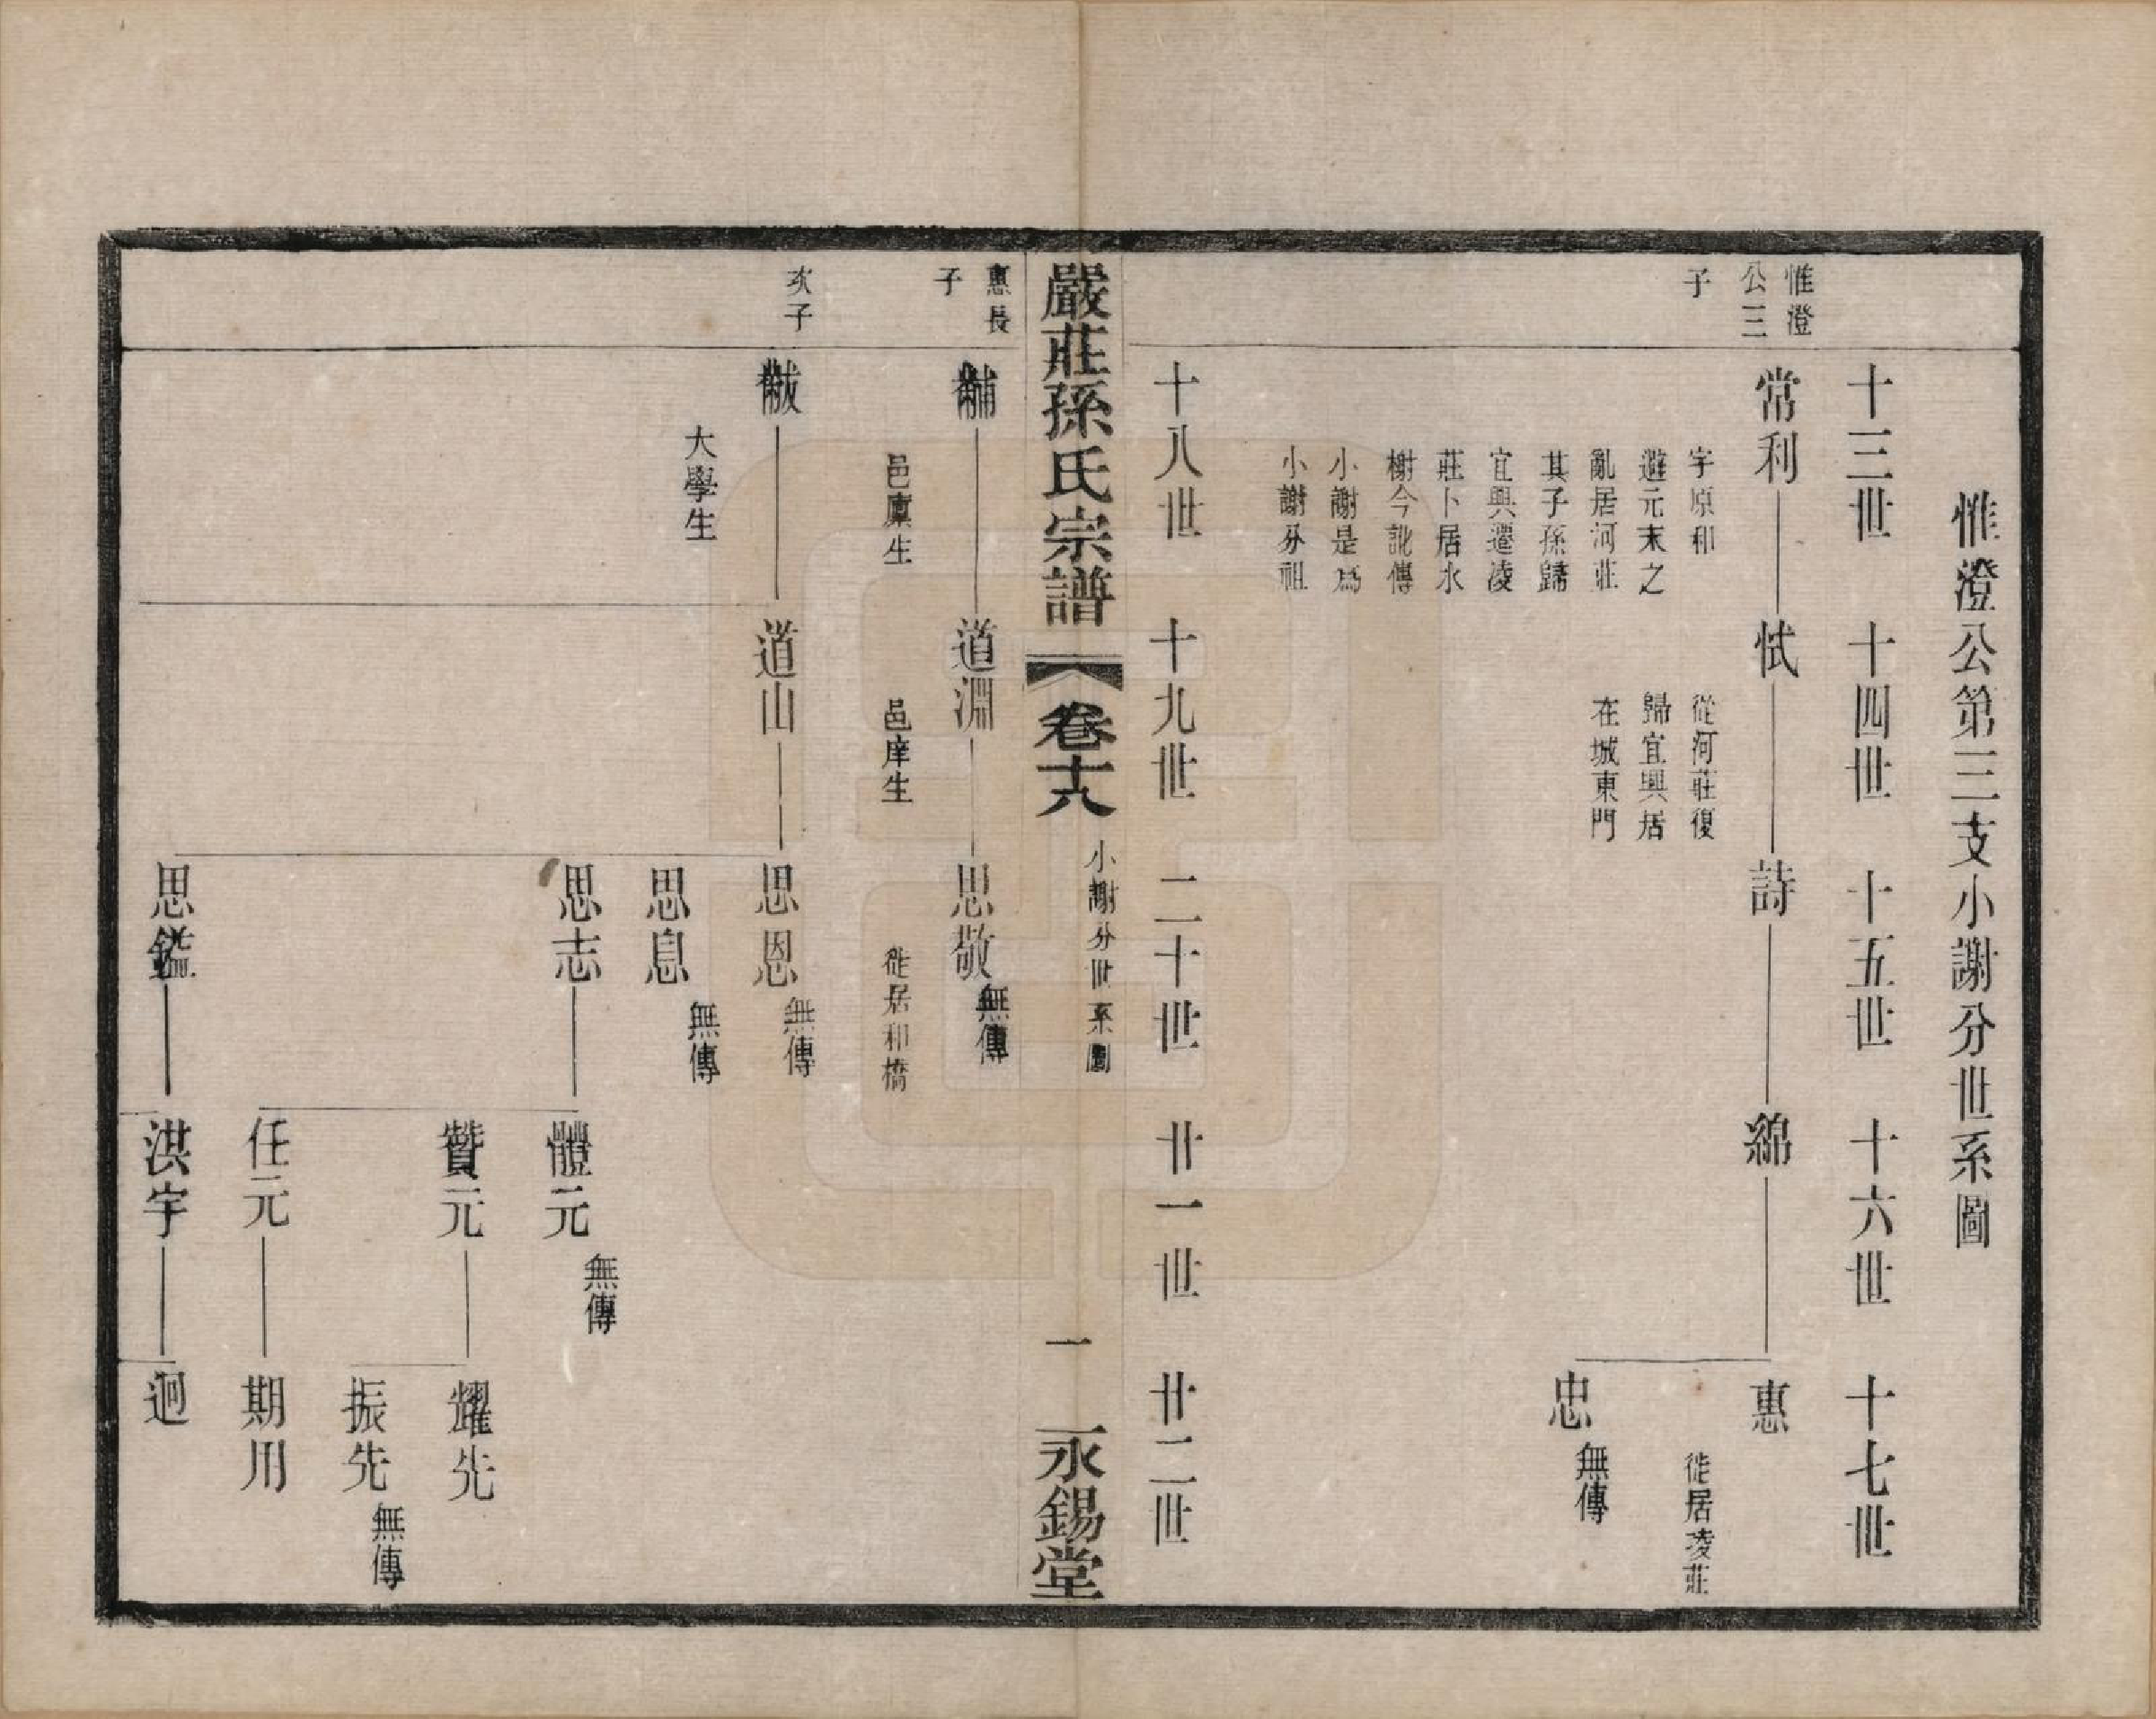 惟澄公第三支小謝分世系圖
十三世　十四世　十五世　十六世　十七世
惟澄
公三
子
常利　恜　詩　綿　惠
字原和
避元末之
亂居河莊
其子孫歸
宜興遷凌
莊卜居水
榭今訛傳
小謝是爲
小謝分祖
從河莊復
歸宜興居
在城東門
徙居凌莊
忠
無傳
十八世　十九世　二十世　廿一世　廿二世
嚴莊孫氏宗譜　卷十八　小謝分世系圖　一　永錫堂
惠長
子
黼　道淵　思敬
無傳
邑廩生　邑庠生　徙居和橋
次子
黻　道山　思恩
無傳
大學生
思息
無傳
思志　體元
無傳
贊元　耀先
振先
無傳
任元　期用
思鎰　洪宇　迥